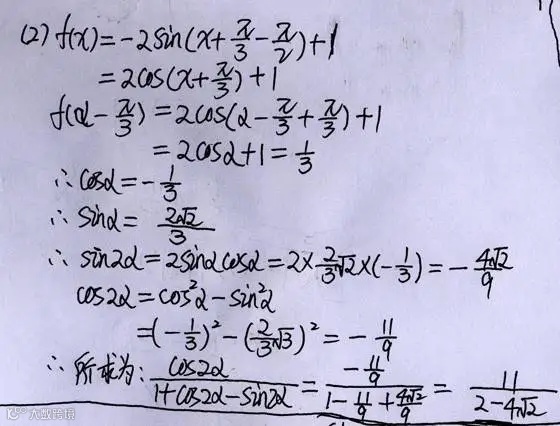 (2) f(x) = -2sin(x+π/3-π/2)+1
= 2cos(x+π/3)+1
f(α-π/3) = 2cos(α-π/3+π/3)+1
= 2cosα+1 = 1/3
∴ cosα = -1/3
∴ sinα = 2√2/3
∴ sin2α = 2sinαcosα = 2×2/3√2×(-1/3) = -4√2/9
cos2α = cos²α-sin²α
= (-1/3)²-(2/3√3)² = -11/9
∴ 所求为: cos2α/(1+cos2α-sin2α) = (-11/9)/(1-11/9+4√2/9) = 11/(2-4√2)
大数跨境